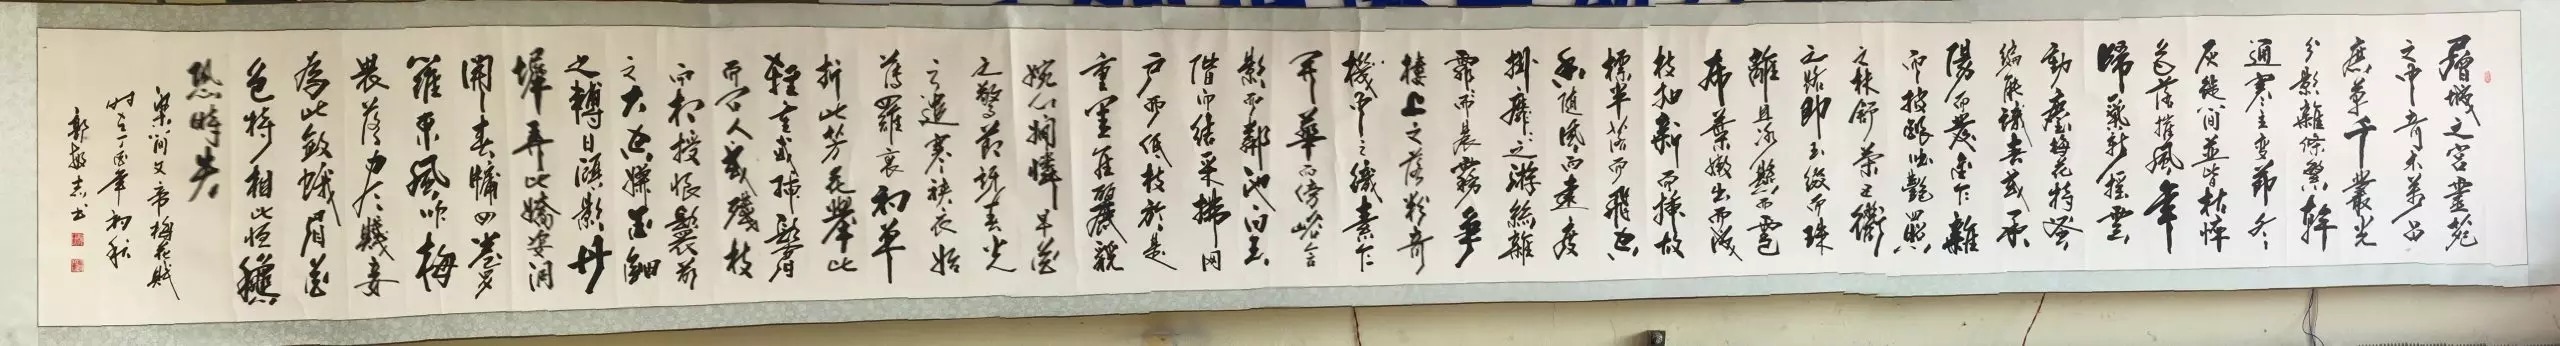 層城之宮靈苑
之中奇木萬品
庶草千叢光
分影雜條繁幹
通寒圭變節冬
灰徙筩並皆枯悴
色落摧風年
歸氣新搖雲
動塵梅花特早
偏能識春或承
陽而發金乍雜
而披銀吐艷照
之林舒榮五衢
之路即玉綴而珠
離且冰懸而雹
布葉嫩出而成
枝抽新而插故
標半落而飛空
香隨風而遠度
掛靡靡之游絲雜
霏而晨霧爭
樓上之落粉奪
機中之織素乍
開華而傍巘含
影而鄰池向玉
階而結采拂网
户而低枝於是
重閨佳麗貌
婉心嫻憐早花
之驚節訝春光
之遣寒裌衣始
薄羅衷初單
折此芳花舉此
輕或插鬢
而問人或殘枝
而相授恨鬟前
之太空嫌金鈿
之轉日顧影丹
墀弄此嬌姿洞
開春牖四卷
羅東風吹梅
畏落盡賤妾
為此斂蛾眉花
色持相比恒愁
恐時失
梁簡文帝梅花賦
時在丁酉年初秋
郭敬志書